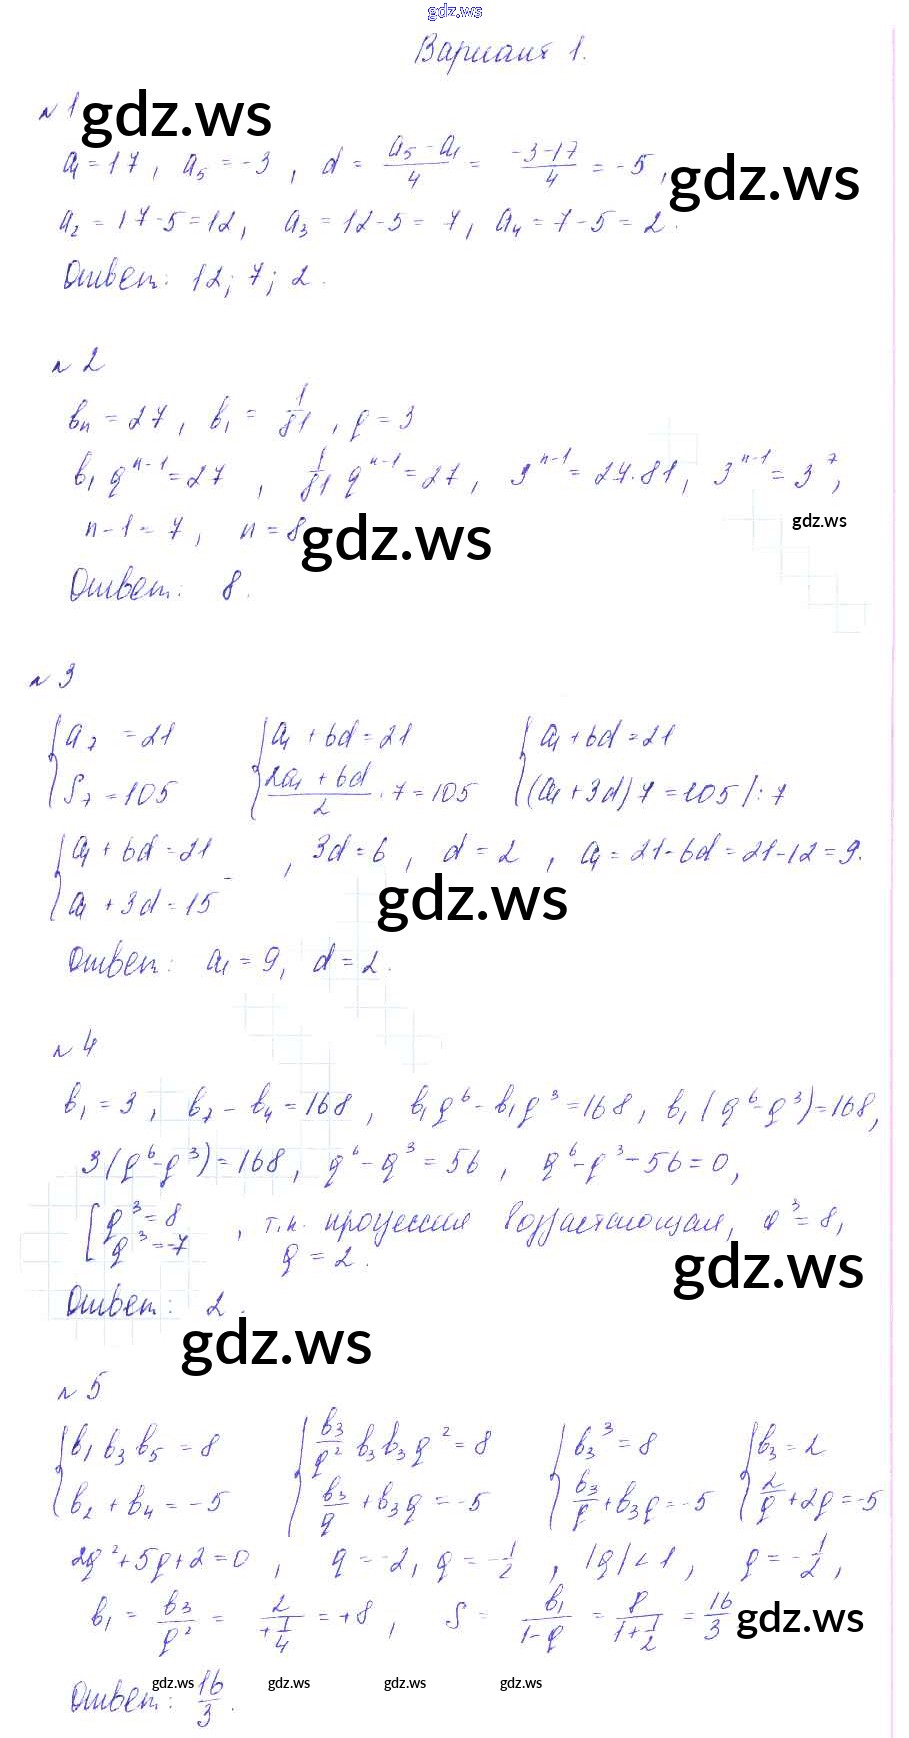 gdz.ws
Вариант 1.
№ 1
gdz.ws
a₁ = 17, a₅ = -3, d = (a₅ - a₁)/4 = (-3-17)/4 = -5,
gdz.ws
a₂ = 17-5 = 12, a₃ = 12-5 = 7, a₄ = 7-5 = 2.
Ответ: 12; 7; 2.
№ 2
bₙ = 27, b₁ = 1/81, q = 3
b₁ qⁿ⁻¹ = 27, 1/81 qⁿ⁻¹ = 27, 3ⁿ⁻¹ = 27·81, 3ⁿ⁻¹ = 3⁷,
gdz.ws
n-1 = 7, n = 8
gdz.ws
Ответ: 8.
№ 3
{ a₇ = 21 { a₁ + 6d = 21 { a₁ + 6d = 21
{ S₇ = 105 { (2a₁ + 6d)/2 · 7 = 105 { (a₁ + 3d) 7 = 105 /: 7
{ a₁ + 6d = 21 , 3d = 6, d = 2, a₁ = 21-6d = 21-12 = 9.
{ a₁ + 3d = 15 -
gdz.ws
Ответ: a₁ = 9, d = 2.
№ 4
b₁ = 3, b₇ - b₄ = 168, b₁q⁶ - b₁q³ = 168, b₁(q⁶-q³) = 168,
3(q⁶-q³) = 168, q⁶ - q³ = 56, q⁶ - q³ - 56 = 0,
[ q³ = 8 , т.к. прогрессия возрастающая, q³ = 8,
[ q³ = -7 q = 2.
gdz.ws
Ответ: 2.
gdz.ws
№ 5
{ b₁ b₃ b₅ = 8 { b₃/q² b₃ b₃q² = 8 { b₃³ = 8 { b₃ = 2
{ b₂ + b₄ = -5 { b₃/q + b₃q = -5 { b₃/q + b₃q = -5 { 2/q + 2q = -5
2q² + 5q + 2 = 0, q = -2, q = -1/2, |q| < 1, q = -1/2,
b₁ = b₃/q² = 2/(+1/4) = +8, S = b₁/(1-q) = 8/(1+1/2) = 16/3
gdz.ws
gdz.ws gdz.ws gdz.ws gdz.ws
Ответ: 16/3.